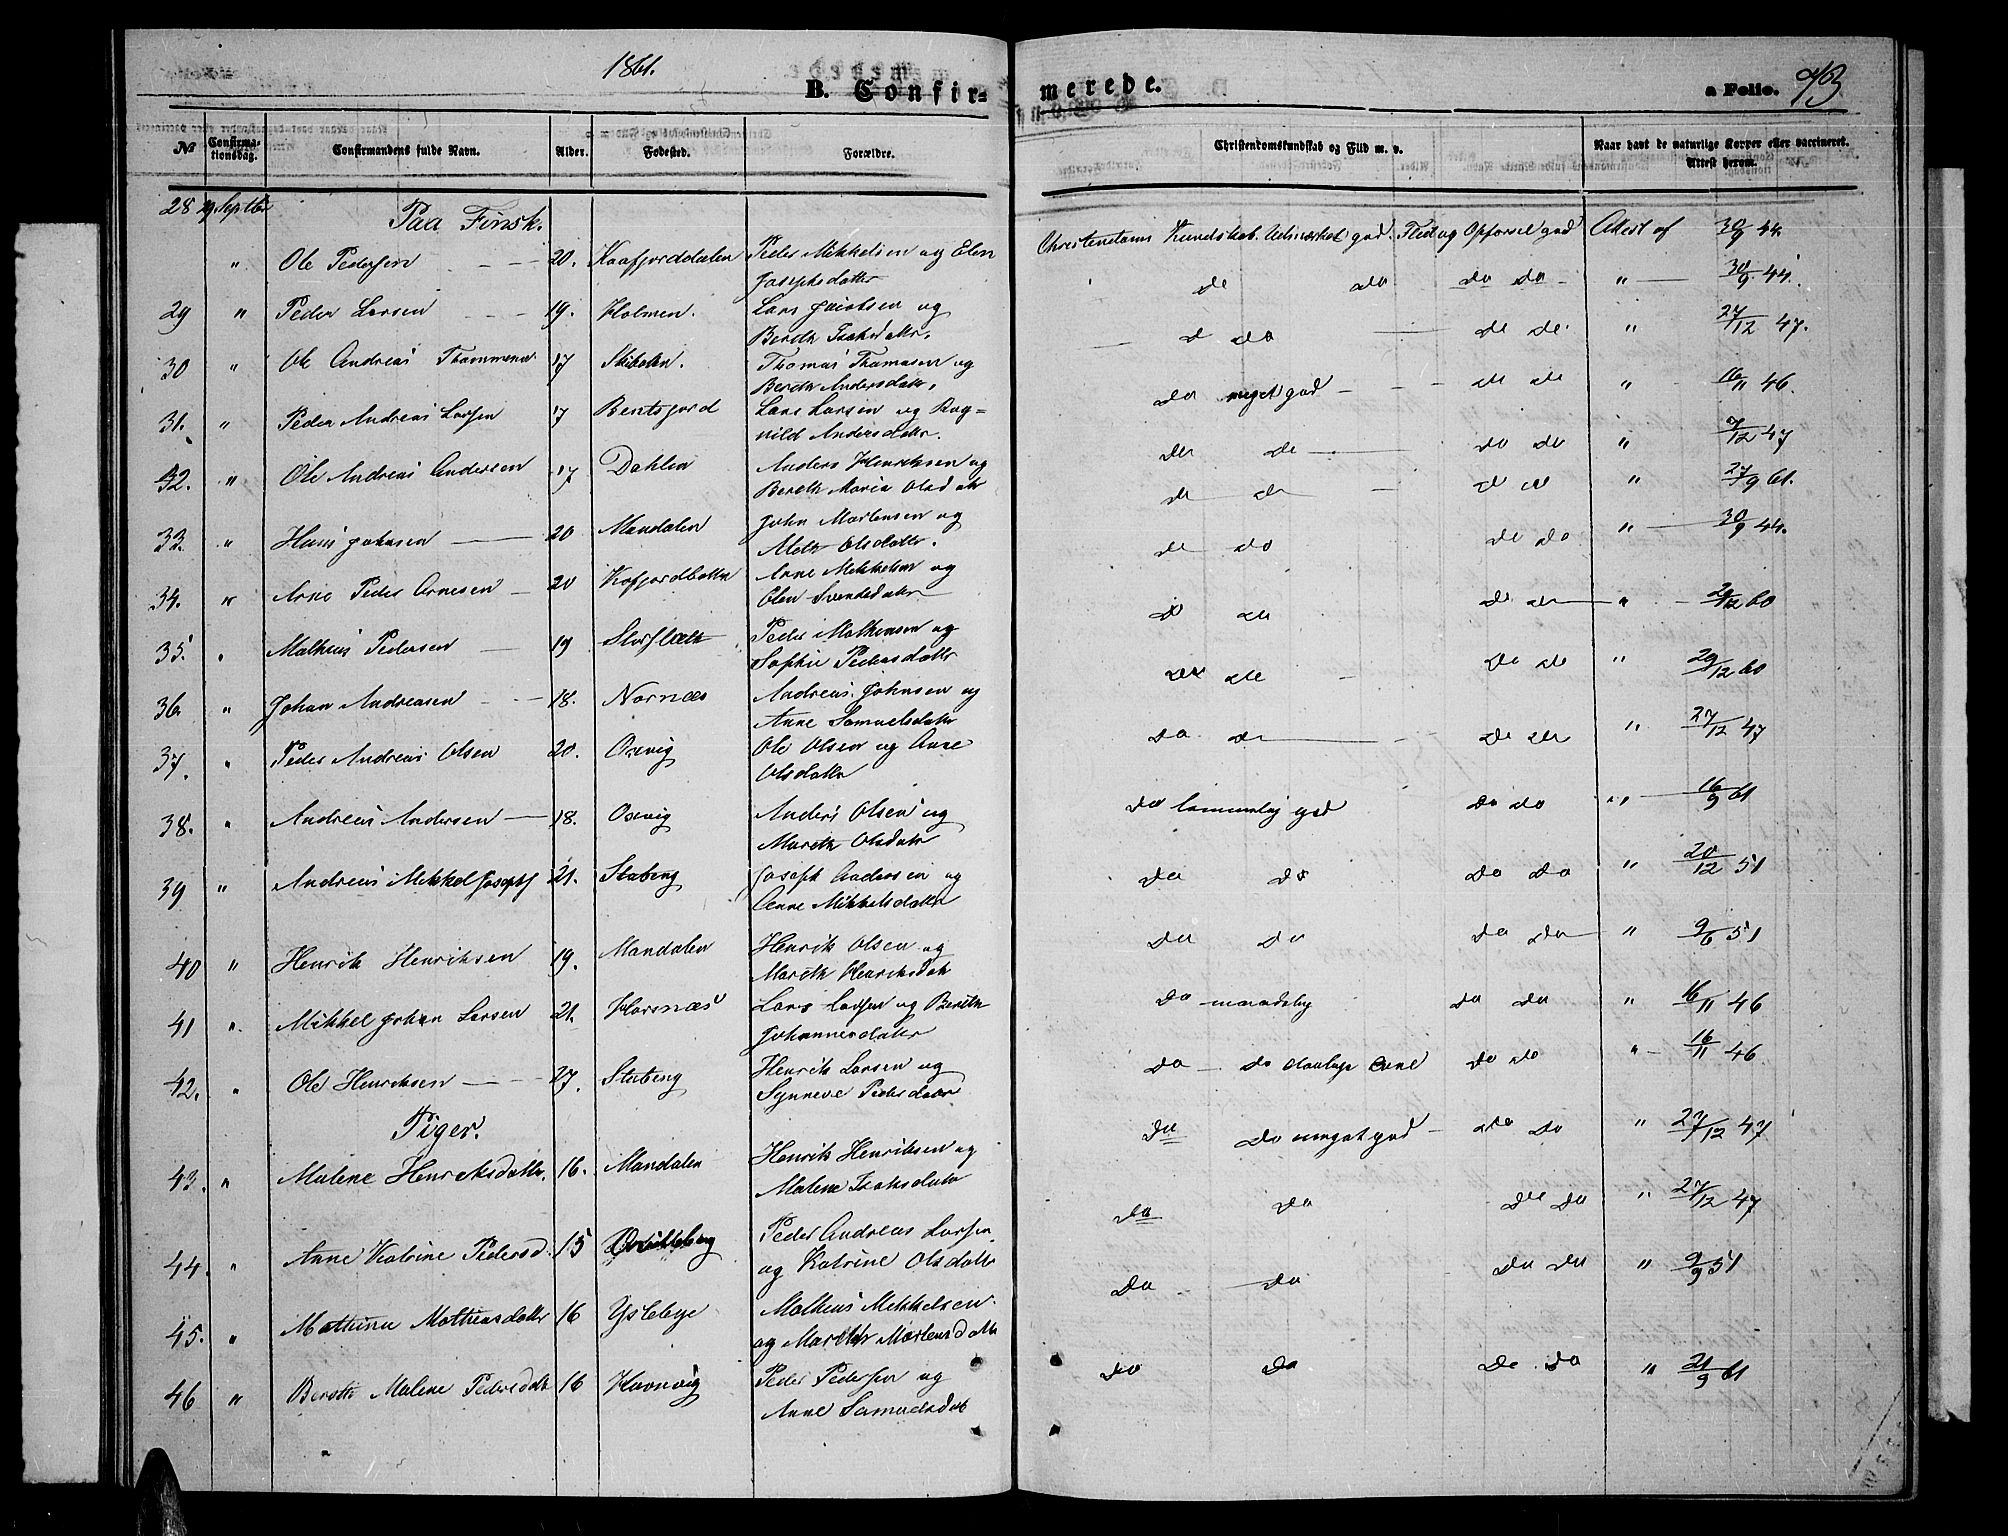 1861.
B. Confirmerede.
a Folio. 73
No Confirmationsdag. Confirmandens fulde Navn. Alder. Fødested. Forældre. Christendomskundskab og Flid m. v. Naar havt de naturlige Kopper eller vaccineret. Attest herom.
28 29 Septbr Paa Finsk.
" Ole Pedersen 20. Kaafjorddalen Peder Mikkelsen og Elen Christendoms Kundskab. Udmærket god. Flid og Opførsel god Attest af 30/9 44.
Josephsdatter
29 " Peder Larsen 19. Holmen. Lars Jacobsen og do do do do " 30/9 44.
Berith Isaksdattr.
30 " Ole Andreas Thommesen 17 Skibotn. Thomas Thomasen og do do do do " 27/12 47.
Berith Andersdattr.
31. " Peder Andreas Larsen 17 Bentsjord Lars Larsen og Rag= do meget god do do " 16/11 46.
nild Andersdattr.
32. " Ole Andreas Andersen 17 Dahlen Anders Henriksen og do do do do " 7/12 47
Berith Maria Olsdatr
33. " Hans Johnsen 20 Mandalen John Mortensen og do do do do " 27/9 61.
Meth Olsdattr.
34. " Arne Peder Arnesen 20 Kofjordbotn Arne Mikkelsen og do do do do " 30/9 44.
Elen Svendsdatr
35. " Mathis Pedersen 19 Storslett Peder Mathisen og do do do do " 29/12 60
Sophie Pedersdattr
36 " Johan Andreasen 18. Nornæs Andreas Johnsen og do do do do " 29/12 60
Anne Samuelsdatr
37. " Peder Andreas Olsen 20. Oxvig Ole Olsen og Ane do do do do " 27/12 47
Olsdattr
38. " Andreas Andersen 18. Oxvig Anders Olsen og do temmelig god do do " 16/9 61
Marith Olsdatr
39 " Andreas Mikkel Josephs 21. Stabeng Joseph Andersen og do do do do " 20/12 51
Anne Mikkelsdattr
40 " Henrik Henriksen 19. Mandalen Henrik Olsen og do do do do " 9/6 51
Marith Henriksdatr
41 " Mikkel Johan Larsen 21. Horsnæs Lars Larsen og Berith do maadelig do do " 16/11 46
Johannesdatr
42. " Ole Henriksen 27. Stabeng Henrik Larsen og do do daarlige Evne do do " 16/11 46
Synneve Pedersdatr
Piger.
43. " Malene Henriksdattr. 16. Mandalen Henrik Henriksen og do do meget god do do " 27/12 47
Malene Isaksdatr
44. " Anne Katrine Pedersd. 15 Peder Andreas Larsen do do do do " 27/12 47
og Katrine Olsdattr
45. " Mathine Mathiasdattr 16 Ystebye Mathias Mikkelsen do do do do " 9/9 51
og Marith Mortensdattr
46 " Berith Malene Pedersdatr 16 Havnvig Peder Pedersen og do do do do " 21/9 61
Anne Samuelsdat